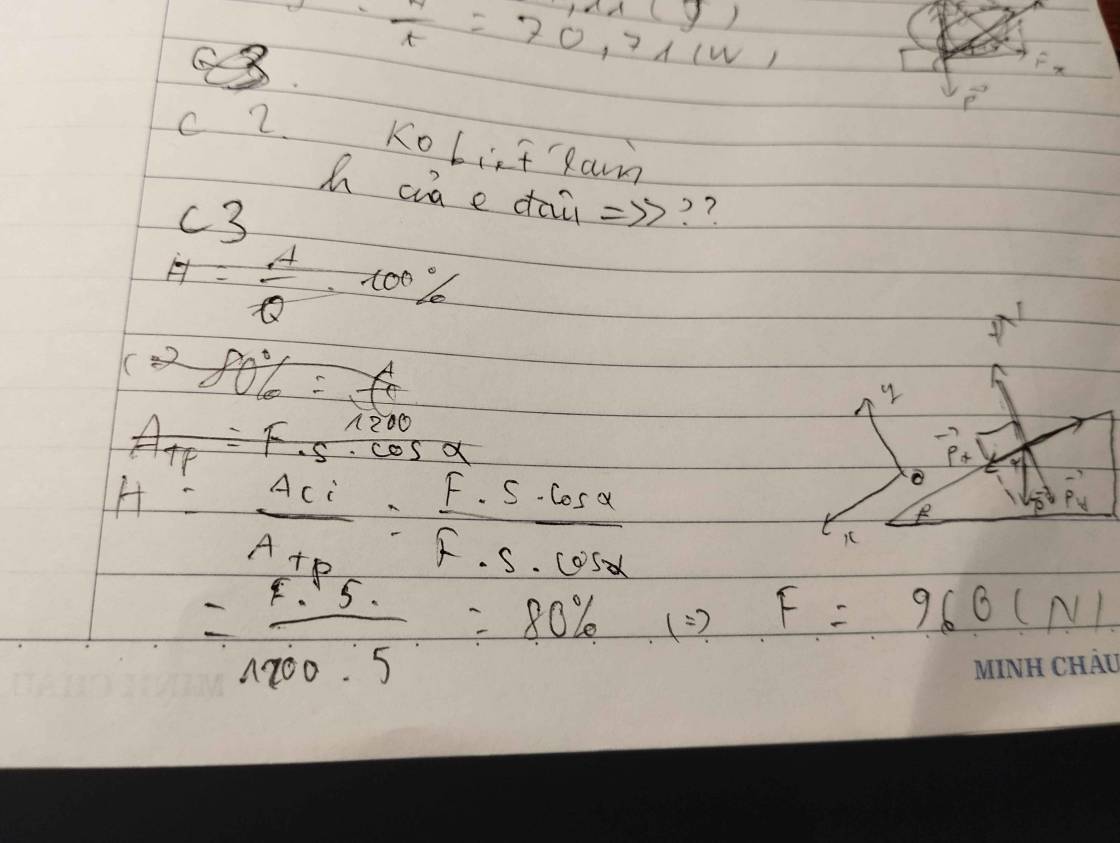 = 70,71 (W)
C 2. Ko biết làm
h của e đâu =>> ??
C3
H = A/Q . 100%
<=> 80% = A/1200
Atp = F.s.cos α
H = Aci/Atp = F.S.cosα/F.s.cosα
= F.5./1200.5 = 80% (=> F = 960 (N)
y
N
Px
P
Py
O
x
β
Fx
P
MINH CHÂU